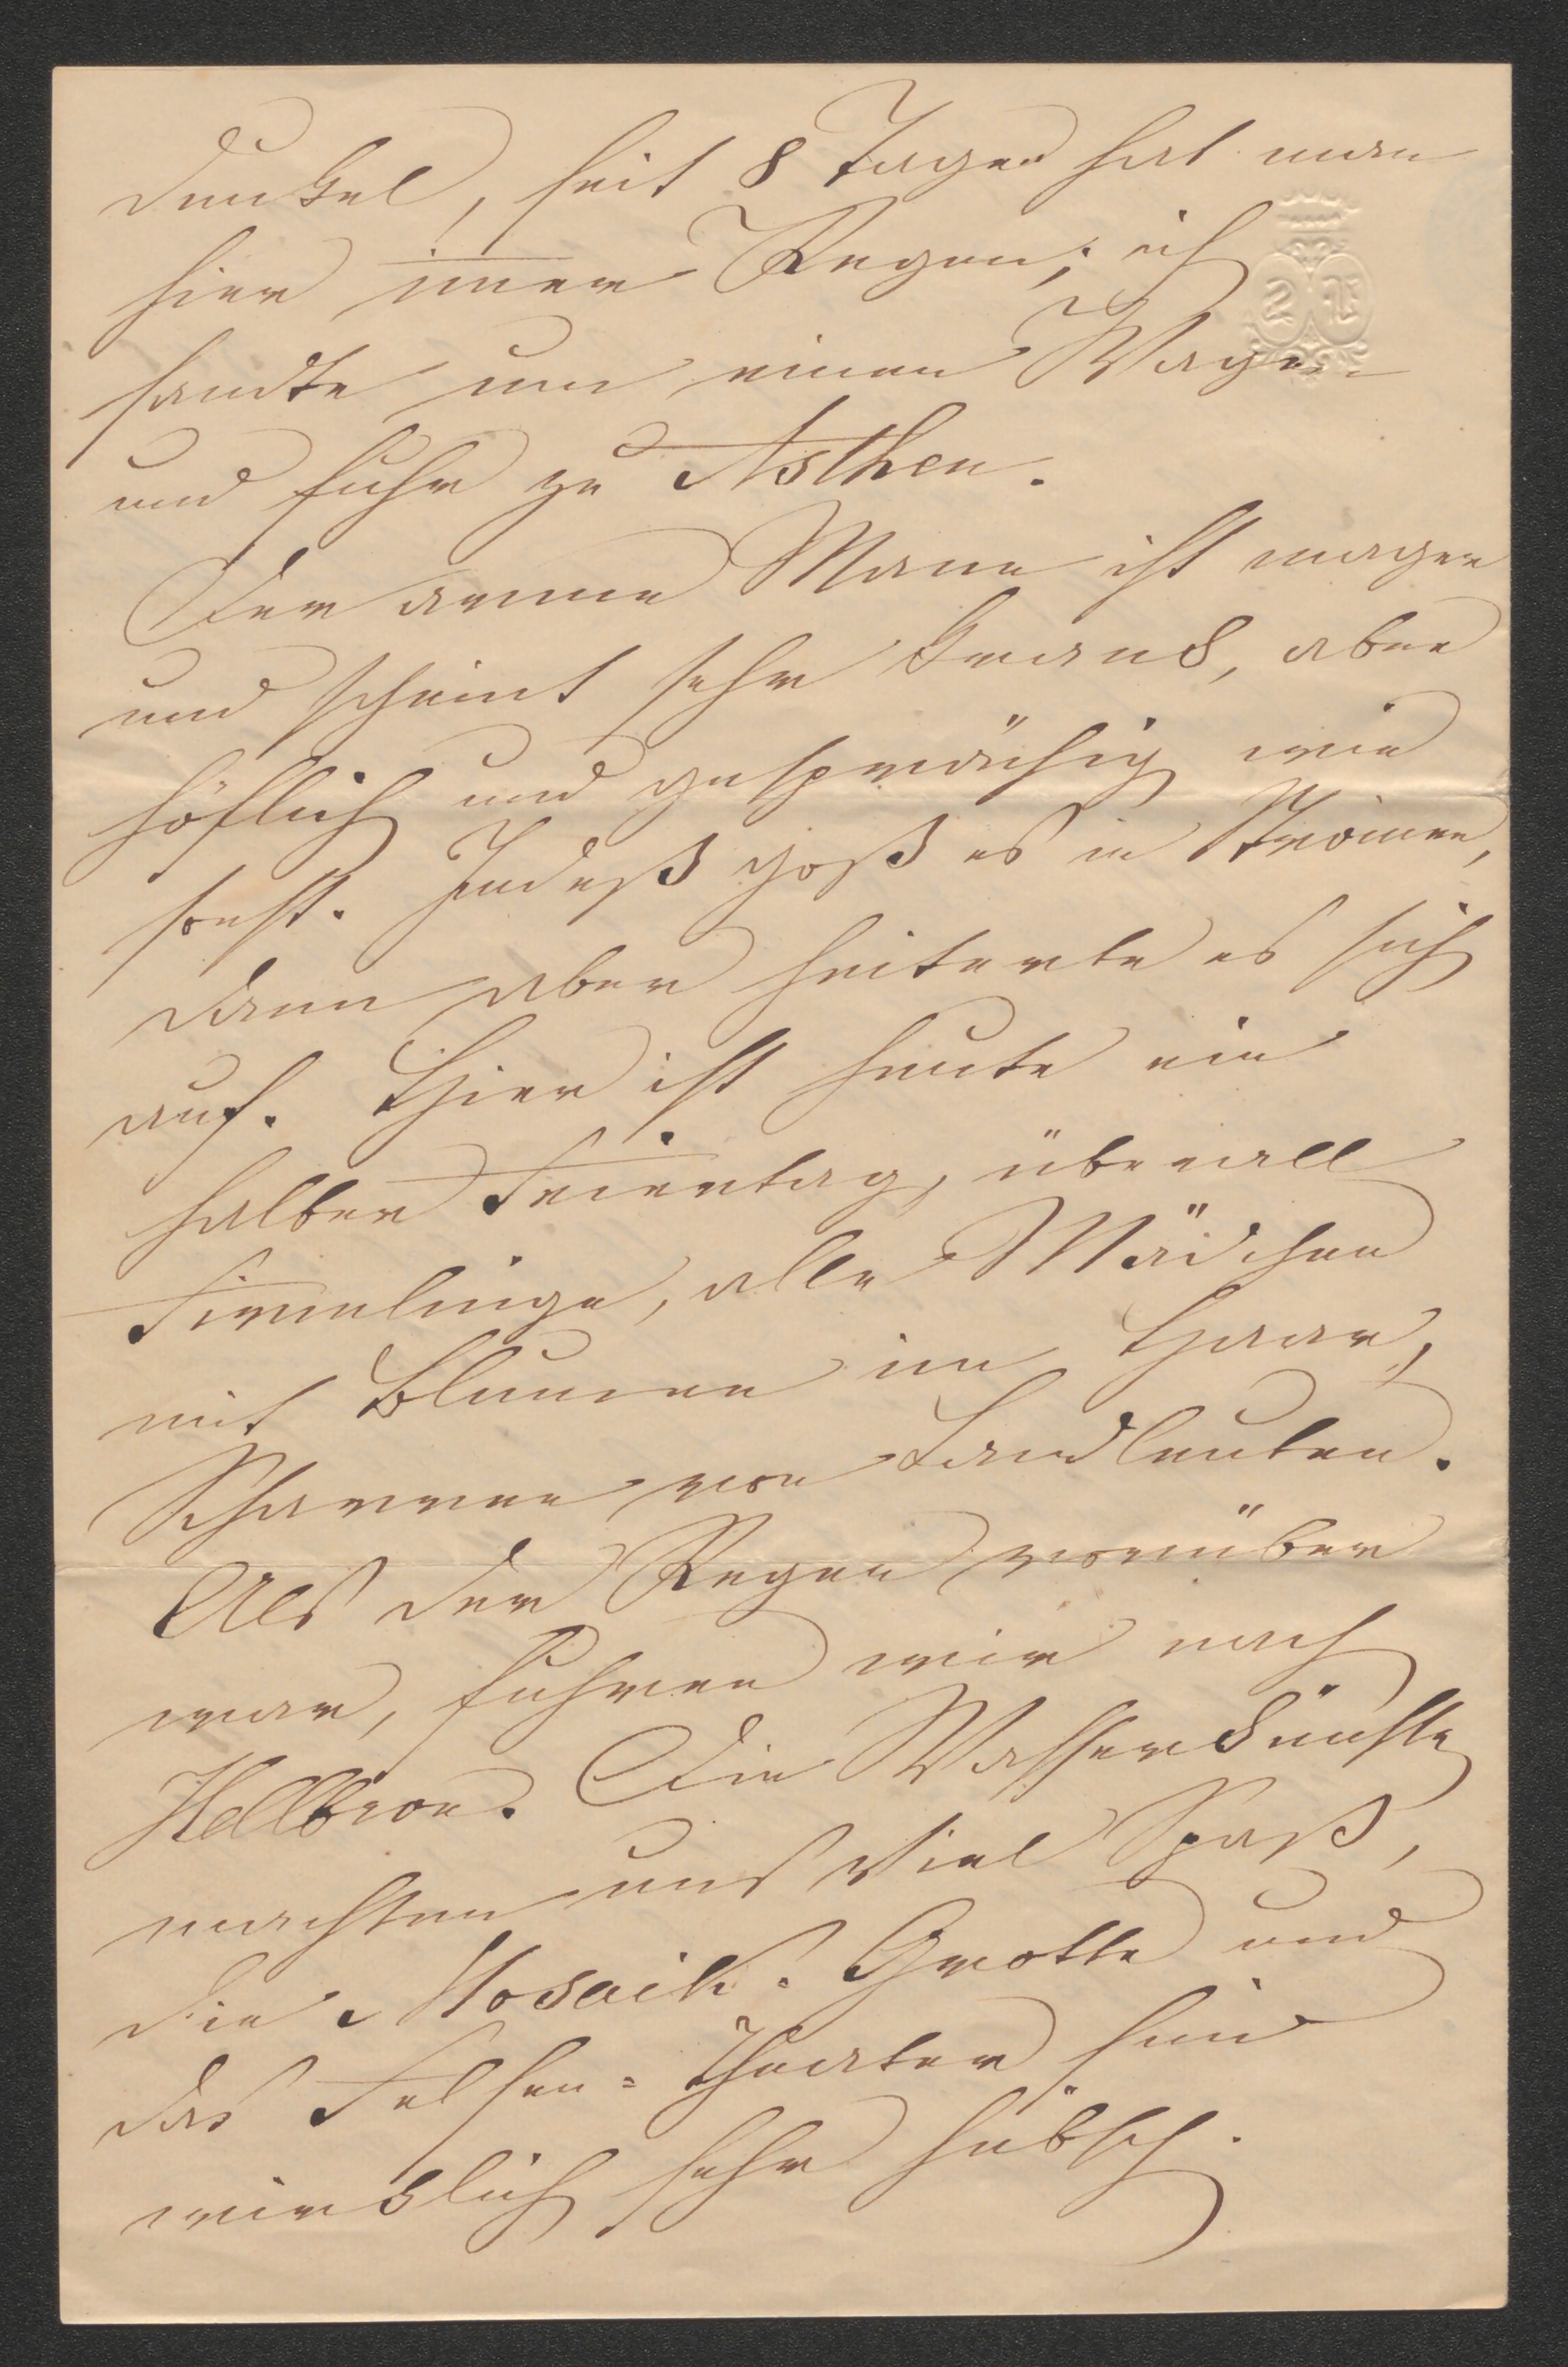 dunkel, seit 8 Tagen hat man
hier im̄er Regen; ich
sandte um einen Wagen
und fuhr zu Asthen.
Der arme Mann ist mager
und scheint sehr krank, aber
höflich und gesprächig wie
sonst. Indeß goß es in Strömen,
dann aber heiterte es sich
auf. Hier ist heute ein
halber Feiertag, überall
Firmlinge, alle Mädchen
mit Blumen im Haar,
Scharren von Landleuten.
Als der Regen vorüber
war, fuhren wir nach
Hellbron. Die Wasserkünste
machten uns viel Spaß,
die Mosaik-Grotte und
das Felsen-Theater sind
wirklich sehr hübsch.